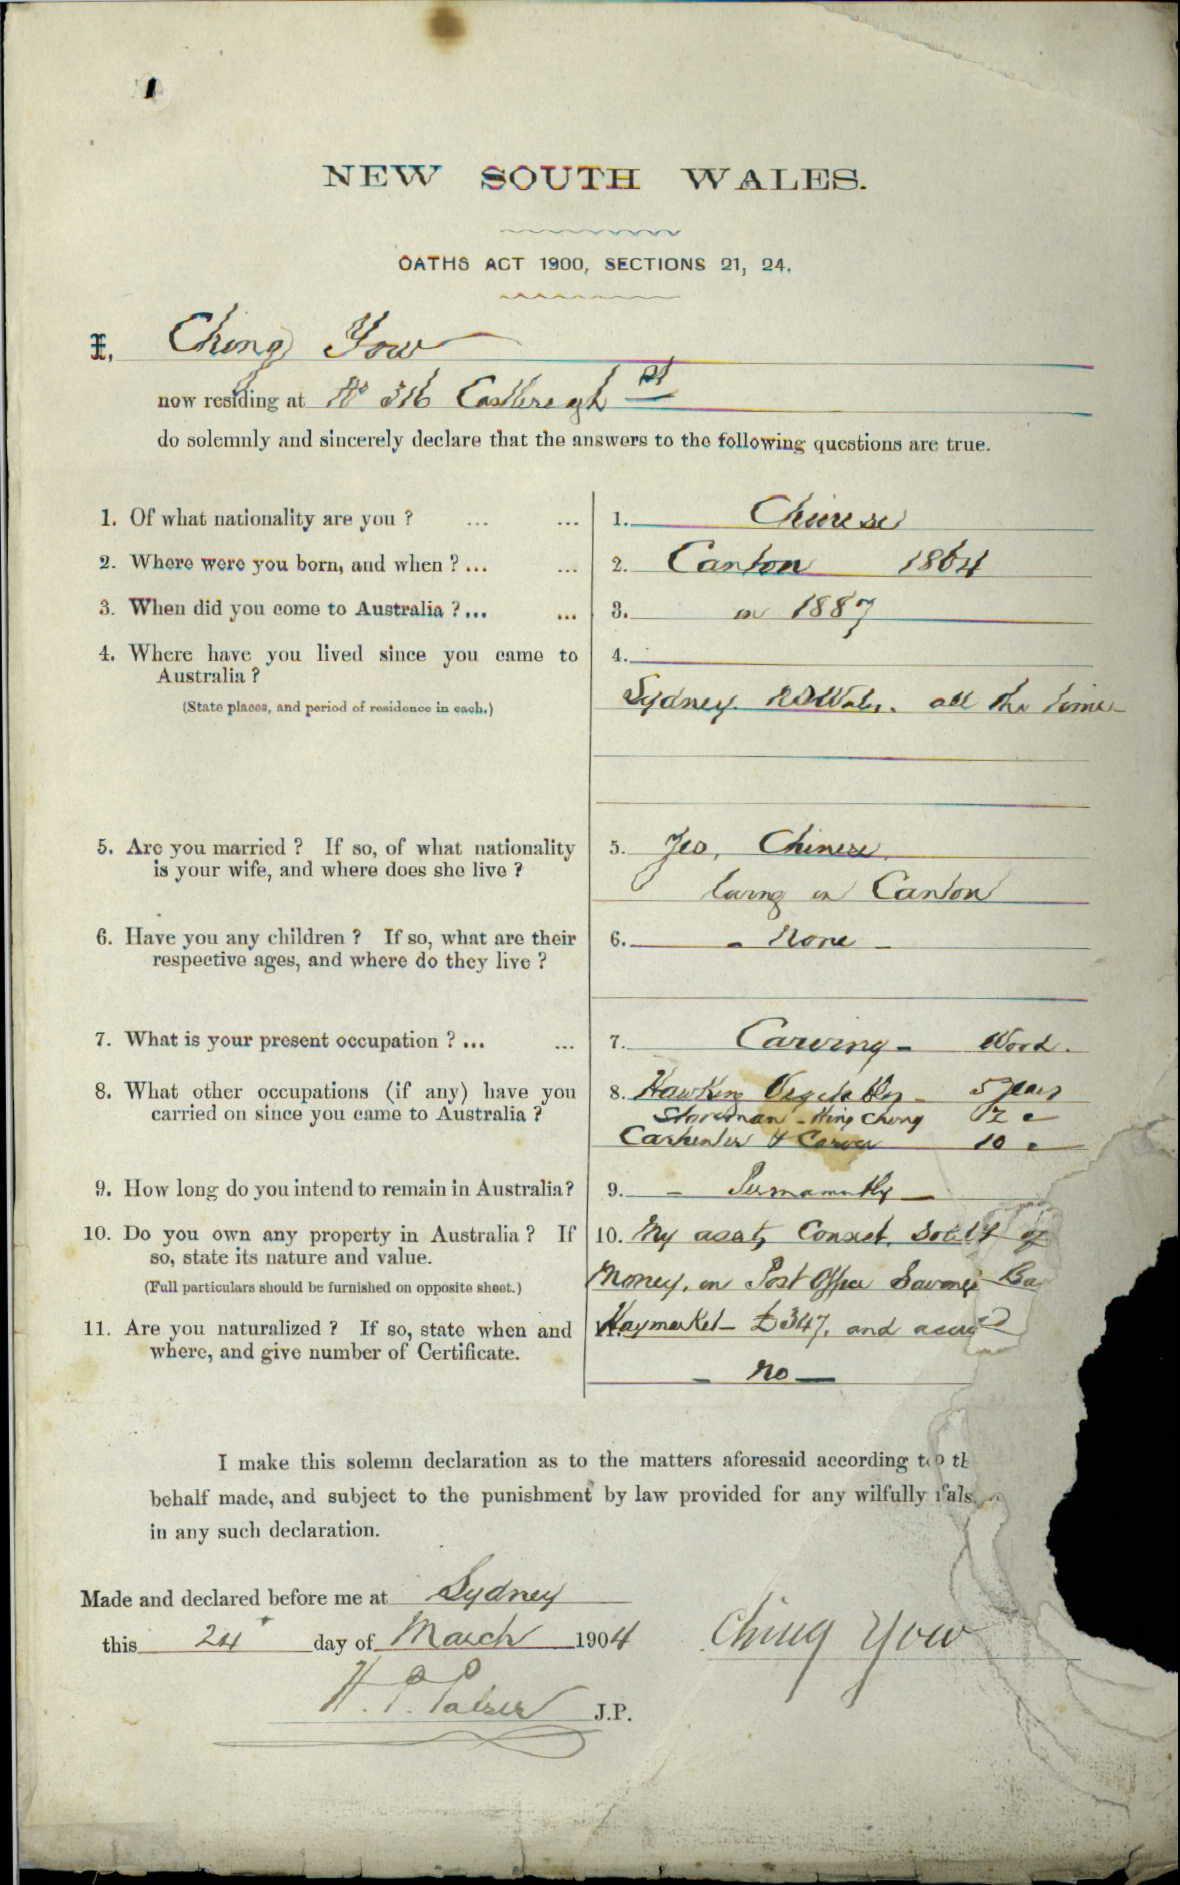 1
NEW SOUTH WALES.
OATHS ACT 1900, SECTIONS 21, 24.
I, Ching Yow
now residing at No 316 Castlereagh St
do solemnly and sincerely declare that the answers to the following questions are true.
1. Of what nationality are you ? ... ... 1. Chinese
2. Where were you born, and when ?... ... 2. Canton 1864
3. When did you come to Australia ?... ... 3. in 1887
4. Where have you lived since you came to 4.
Australia ?
(State places, and period of residence in each.) Sydney. NSWales. all the time
5. Are you married ? If so, of what nationality 5. Yes, Chinese
is your wife, and where does she live ? living in Canton
6. Have you any children ? If so, what are their 6. - None -
respective ages, and where do they live ?
7. What is your present occupation ? ... ... 7. Carving - Wood.
8. What other occupations (if any) have you 8. Hawking Vegetables - 5 years
carried on since you came to Australia ? Storeman - Hing Chong 2 "
Carpenter & Carver 10 "
9. How long do you intend to remain in Australia? 9. - Permanently -
10. Do you own any property in Australia ? If 10. My assets Consist solely of
so, state its nature and value.
(Full particulars should be furnished on opposite sheet.) Money, in Post Office Savings Ba
11. Are you naturalized ? If so, state when and 11. Haymarket - £347. and
where, and give number of Certificate.
- No -
I make this solemn declaration as to the matters aforesaid according to th
behalf made, and subject to the punishment by law provided for any wilfully fals
in any such declaration.
Made and declared before me at Sydney
this 24 day of March 1904 Ching Yow
H. P. Palser J.P.